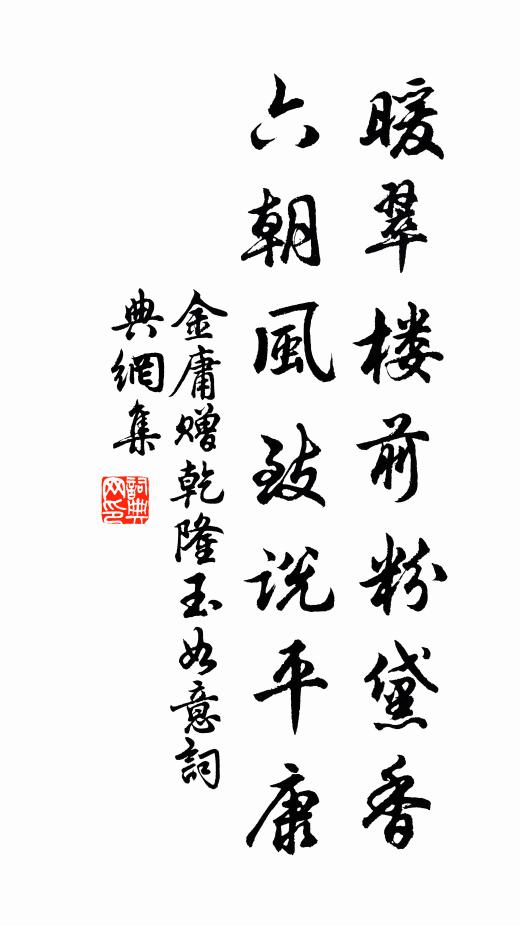 暖翠楼前粉黛香
六朝風致说平康
金庸赠乾隆玉如意詞
典網集
詞典
网印